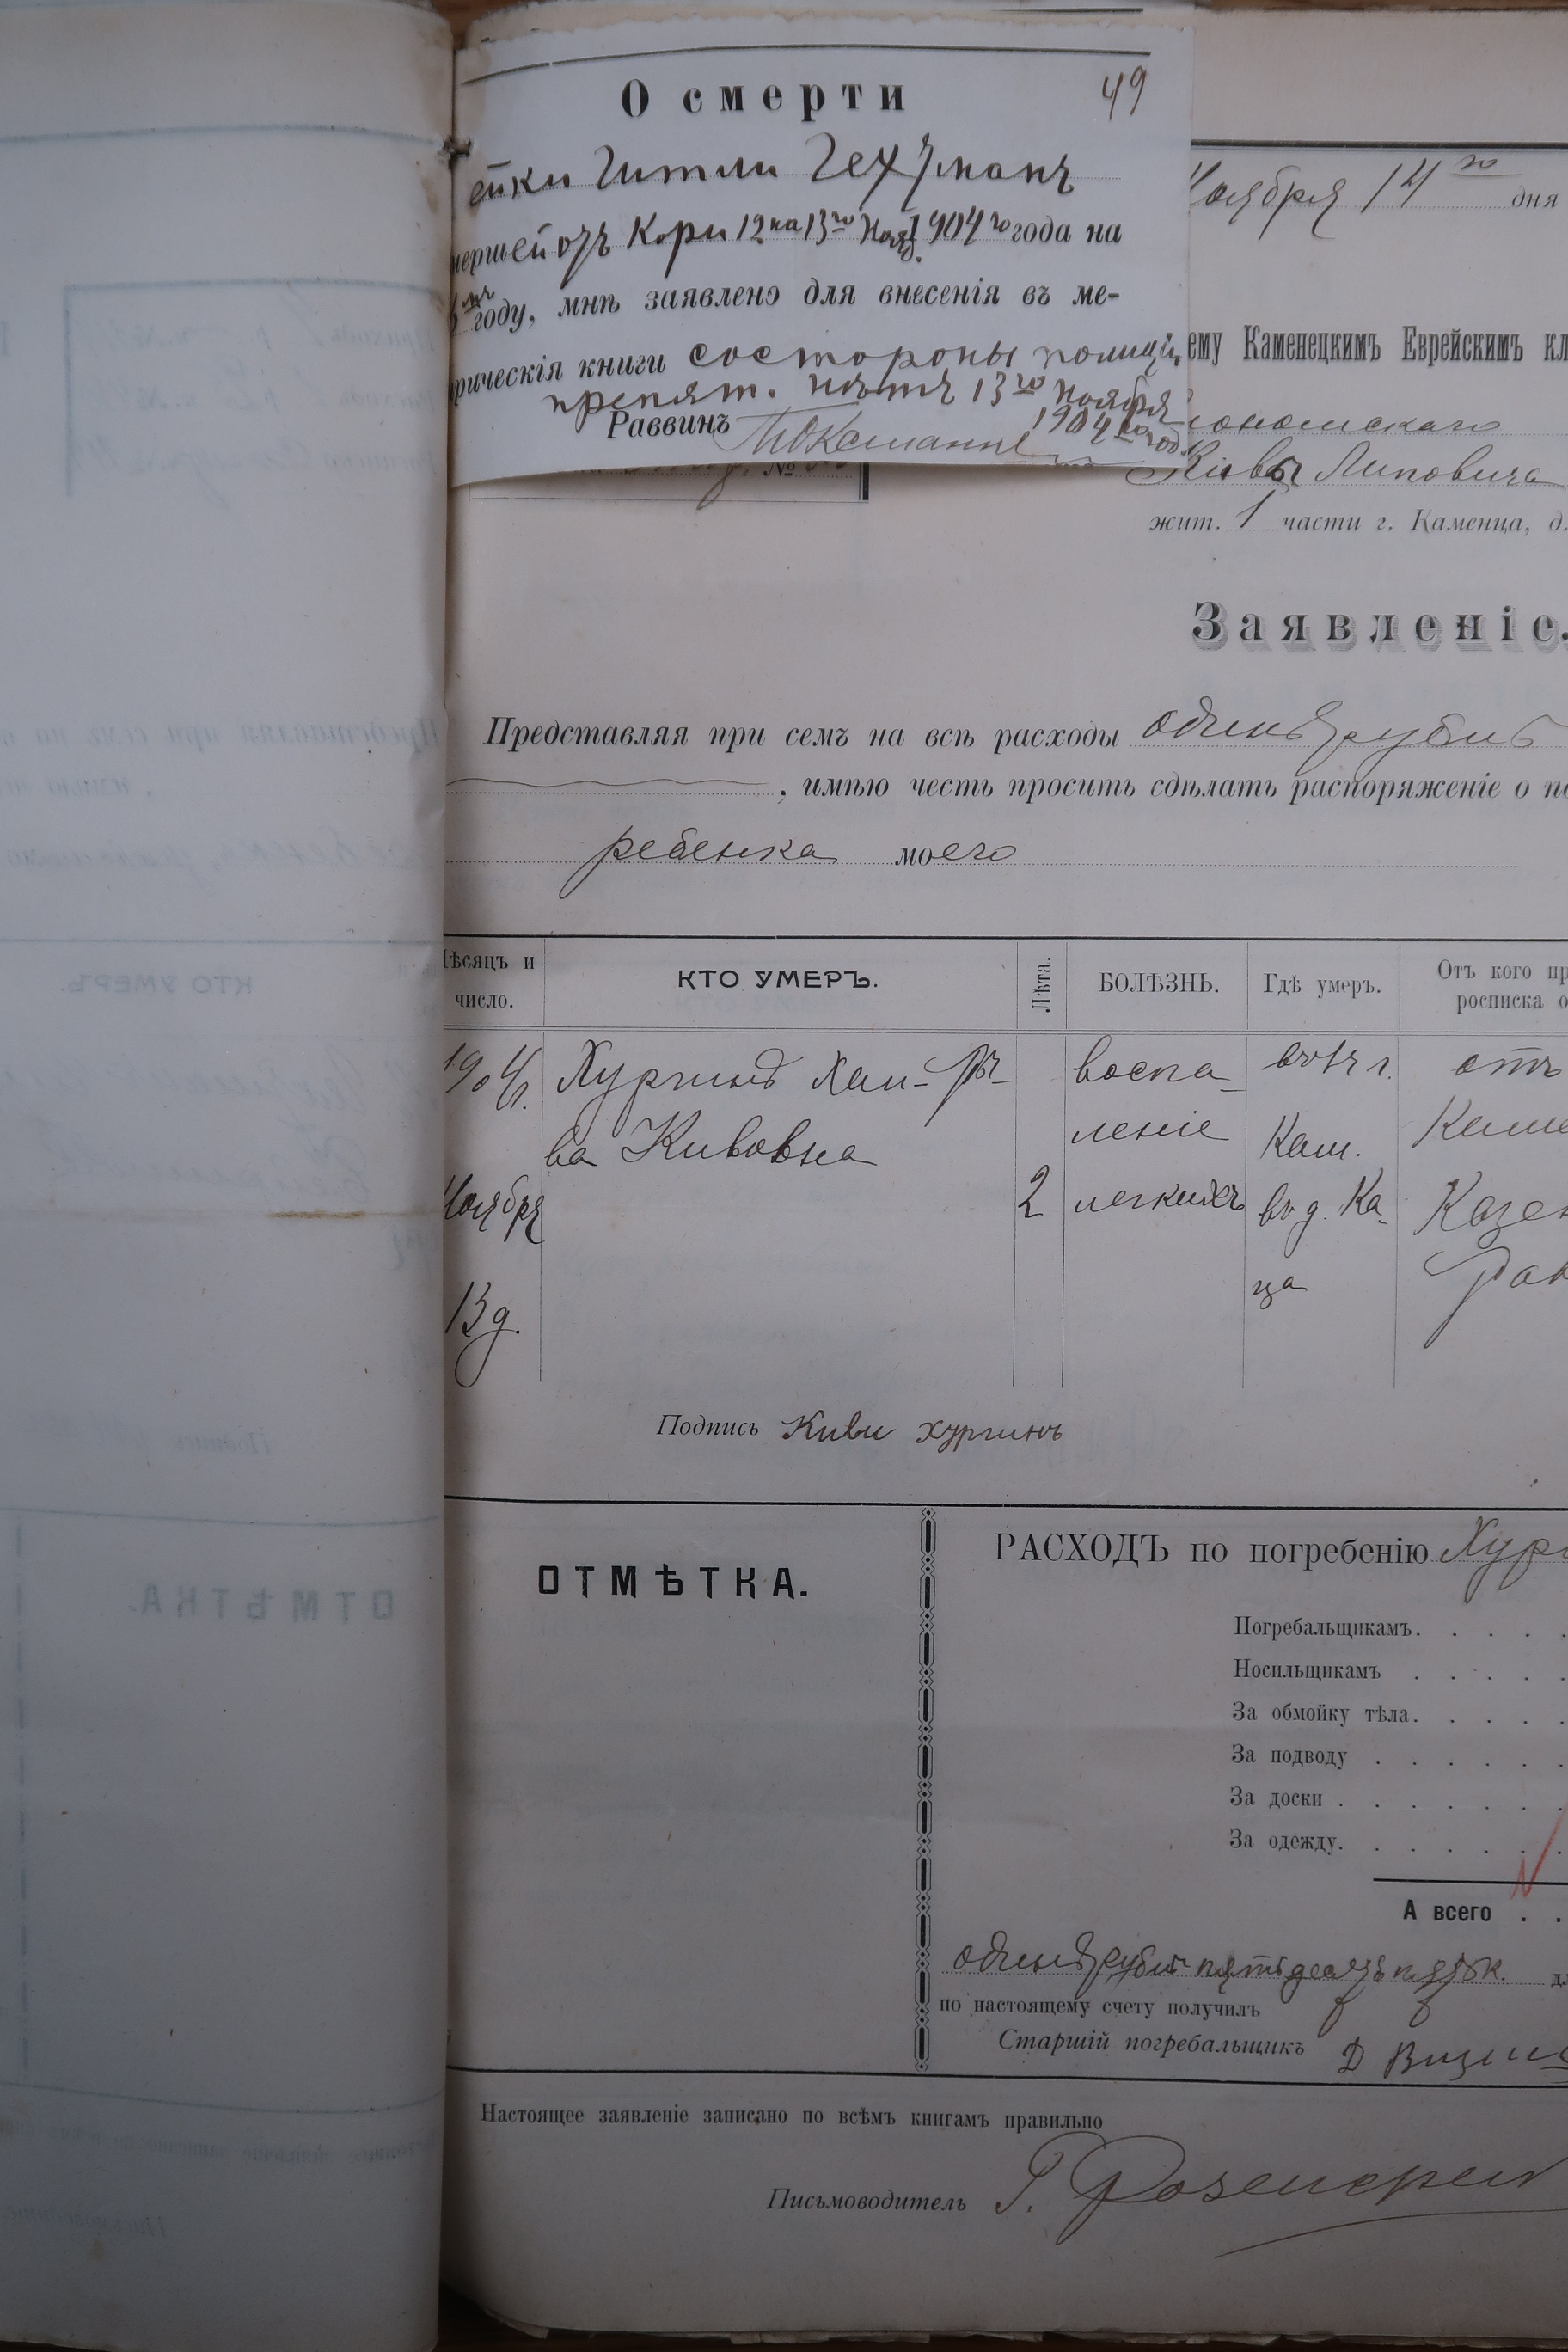 О смерти 49
ейки Гитли Гехтманъ
мершей отъ Кори 12 на 13го Нояб. 1904го года на
году, мнѣ заявлено для внесенія въ ме-
рическія книги со стороны полиціи
препят. нѣтъ 13го Ноября
1904го год.
Раввинъ
№
Ноября 14го дня
ему Каменецкимъ Еврейскимъ кл
Кивы Липовича
жит. 1 части г. Каменца, д.
Заявленіе.
Представляя при семъ на всѣ расходы одинъ рубль
, имѣю честь просить сдѣлать распоряженіе о по
ребенка моего
Мѣсяцъ и число.
КТО УМЕРЪ.
Лѣта.
БОЛѢЗНЬ.
Гдѣ умеръ.
Отъ кого пр
росписка о
1904г.
Ноября
13 д.
Хургинъ Хая-Ри-
ва Кивовна
2
воспа-
леніе
легкихъ
въ г.
Кам.
въ д. Ка-
ца
отъ
Каме
Казен
Рав
Подпись Киви Хургинъ
ОТМѢТКА.
РАСХОДЪ по погребенію Хург
Погребальщикамъ. . . . .
Носильщикамъ . . . .
За обмойку тѣла. . . . .
За подводу . . . . . .
За доски . . . . . . .
За одежду. . . . . . .
А всего . .
одинъ рубль пятьдесятъ пять к.
по настоящему счету получилъ
Старшій погребальщикъ Д
Настоящее заявленіе записано по всѣмъ книгамъ правильно
Письмоводитель Г.